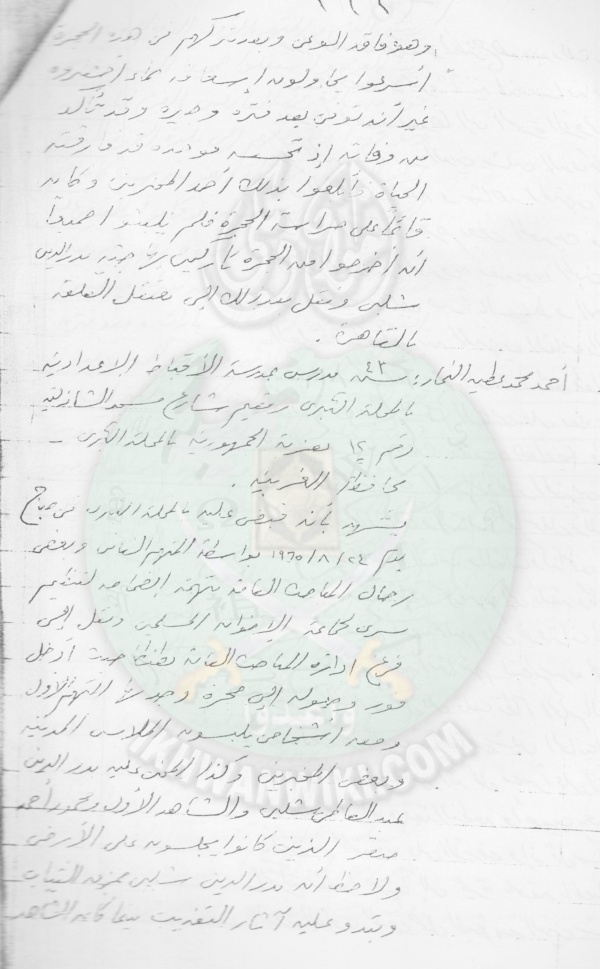 وهو فاقد الوعى وبعد تركهم فى هذه الحجرة
أسرعوا يحاولون إسعافه بماء أحضروه
غير أنه توفى بعد فترة وجيزة وقد تأكد
من وفاته إذ تحسسه فوجده قد فارقته
الحياة فأبلغوا بذلك أحد المخبرين وكان
قائما على حراسة الحجرة فلم يلبثوا
أن أخرجوا من الحجرة تاركين بها جثة بدر الدين
شلبى ونقل بعد ذلك إلى معتقل القلعة
بالقاهرة .
أحمد محمد عطيه النجار : سنه ٤٢ مدرس بمدرسة الأقباط الاعدادية
بالمحلة الكبرى ومقيم شارع مسجد الشاذلية
رقم ١٤ بعزبة الجمهورية بالمحلة الكبرى -
محافظة الغربية .
يشهد بأنه قبض عليه بالمحلة الكبرى فى صباح
يوم ٢٤ / ٨ / ١٩٦٥ بواسطة المتهم الثانى وبعض
رجال المباحث العامة بتهمة انضمامه لتنظيم
سرى لجماعة الإخوان المسلمين ونقل إلى
فرع إدارة المباحث العامة بطنطا حيث أدخل
فور وصوله إلى حجرة وجد بها المتهم الأول
ومعه أشخاص يلبسون الملابس المدنية
وبعض المخبرين وكذا المجنى عليه بدر الدين
عبد العاطى شلبى والشاهد الأول ومحمود أحمد
صقر الذين كانوا يجلسون على الأرض
ولاحظ أن بدر الدين شلبى ممزق الثياب
وتبدو عليه آثار التعذيب بينما كان الشاهد
وأعدوا
IKHWANWIKI.COM